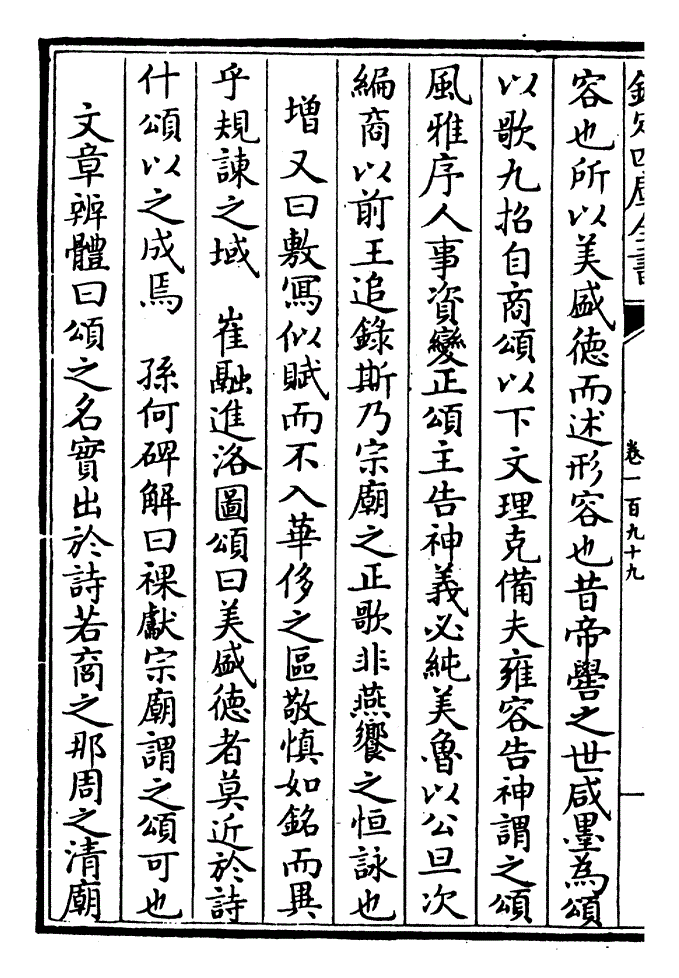 欽定四庫全書
卷一百九十九
容也所以美盛德而述形容也昔帝嚳之世咸墨為頌
以歌九招自商頌以下文理克備夫雍容告神謂之頌
風雅序人事資變正頌主告神義必純美魯以公旦次
編商以前王追錄斯乃宗廟之正歌非燕饗之恒詠也
增又曰敷寫似賦而不入華侈之區敬慎如銘而異
乎規諫之域　崔融進洛圖頌曰美盛德者莫近於詩
什頌以之成焉　孫何碑解曰祼獻宗廟謂之頌可也
文章辨體曰頌之名實出於詩若商之那周之清廟